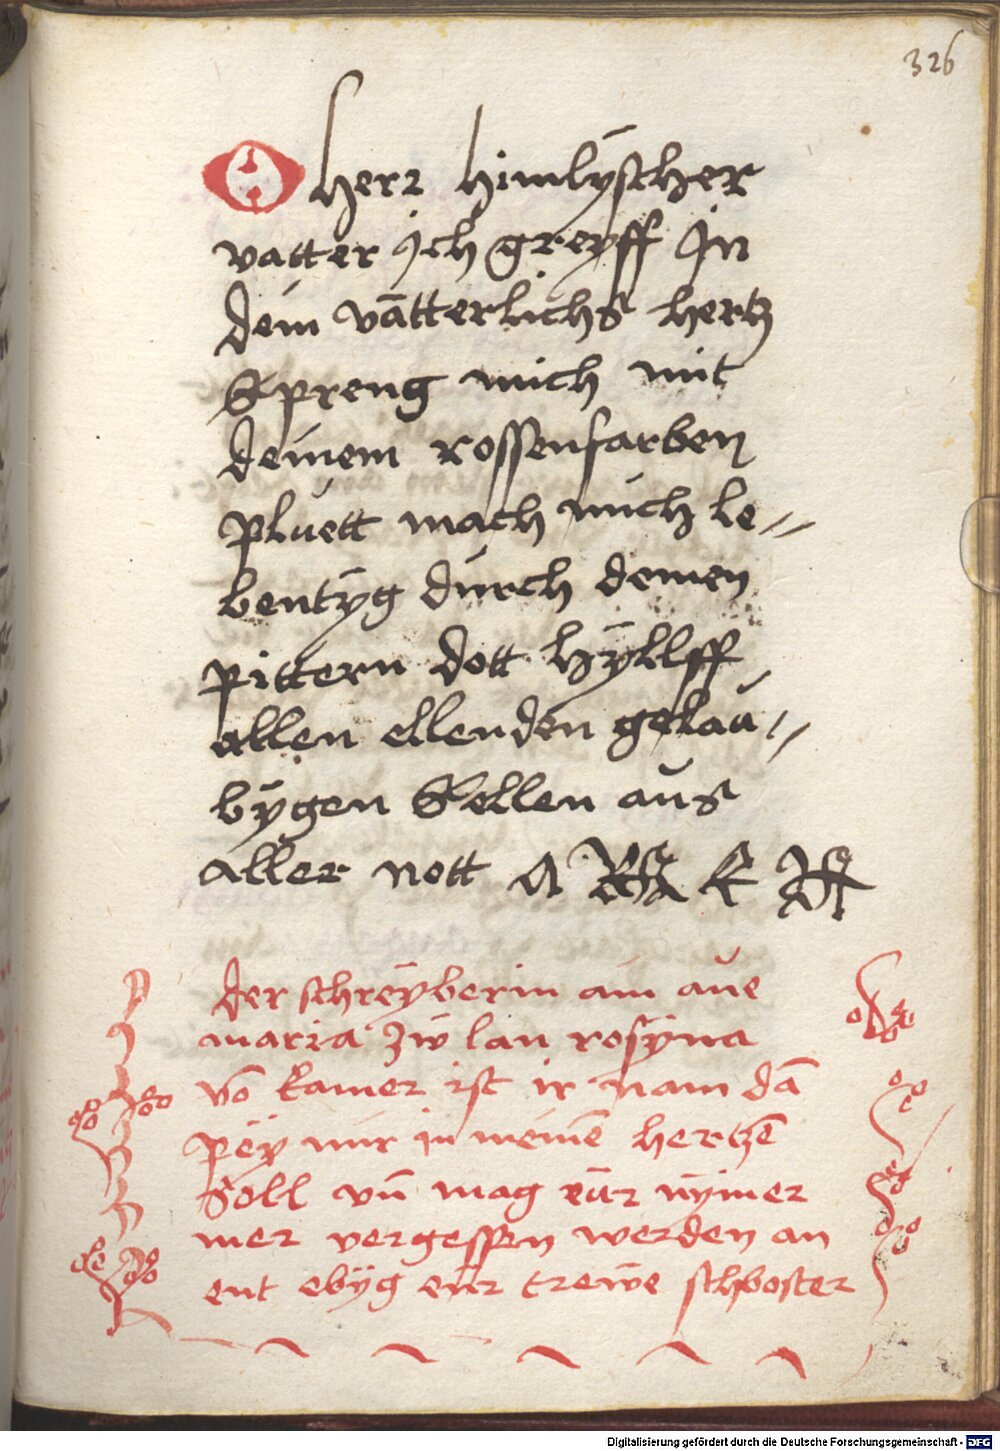 326
O herr himlÿscher
vatter jch greyff Jn
dein vātterlichs hertz
Spreng mich mit
deinem rossenfarben
pluett mach mich le-
bentÿg durch deinen
pittern dott hÿllff
allen ellenden gelau-
bÿgen Sellen aus
aller nott A M E N
der schreÿberin ain aue
maria zw lan rosÿna
vō kamer ist ir nam dā
peÿ mir in meinē hertzē
Soll vn̄ mag eur nÿmer
mer vergessen werden an
ent ebÿg eur trewe schboster
Digitalisierung gefördert durch die Deutsche Forschungsgemeinschaft - DFG